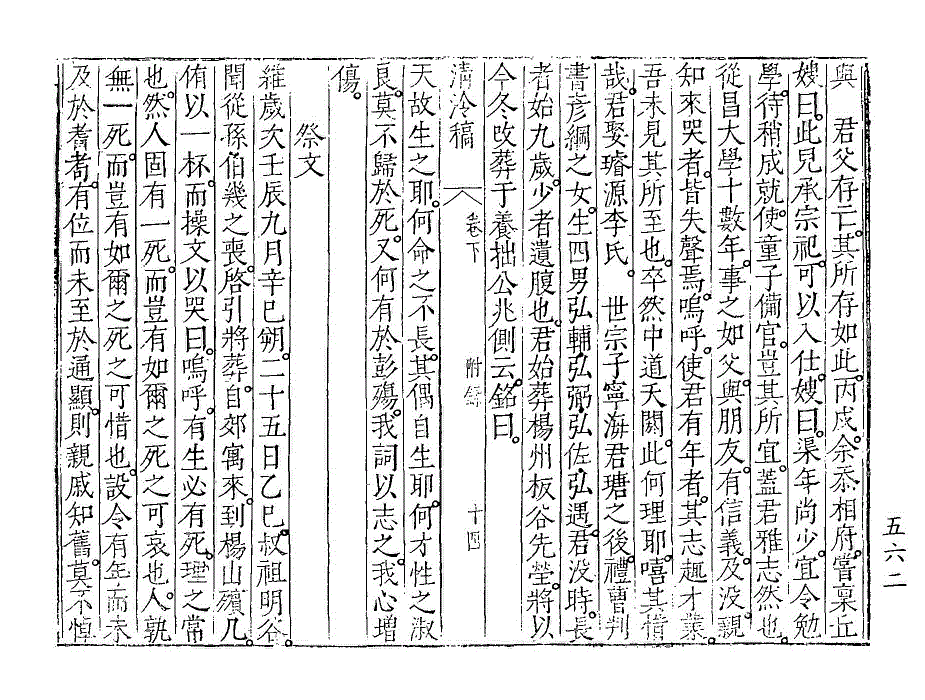 與　君父存亡。其所存如此。丙戌。余忝相府。嘗稟丘
嫂曰。此兒承宗祀。可以入仕。嫂曰。渠年尚少。宜令勉
學。待稍成就。使童子備官。豈其所宜。蓋君雅志然也。
從昌大學十數年。事之如父。與朋友有信義。及沒。親
知來哭者。皆失聲焉。嗚呼。使君有年者。其志趣才業。
吾未見其所至也。卒然中道夭閼。此何理耶。嘻其惜
哉。君娶璿源李氏。　世宗子寧海君瑭之後。禮曹判
書彥綱之女。生四男弘輔弘弼弘佐弘遇。君沒時。長
者始九歲。少者遺腹也。君始葬楊州板谷先塋。將以
今冬改葬于養拙公兆側云。銘曰。
清冷稿　卷下　附錄　十四
天故生之耶。何命之不長。其偶自生耶。何才性之淑
良。莫不歸於死。又何有於彭殤。我詞以志之。我心增
傷。
祭文
維歲次壬辰九月辛巳朔。二十五日乙巳。叔祖明谷
聞從孫伯幾之喪。啓引將葬。自郊寓來。到楊山殯几。
侑以一杯。而操文以哭曰。嗚呼。有生必有死。理之常
也。然人固有一死。而豈有如爾之死之可哀也。人孰
無一死。而豈有如爾之死之可惜也。設令有年而未
及於耆耇。有位而未至於通顯。則親戚知舊。莫不悼
五六二